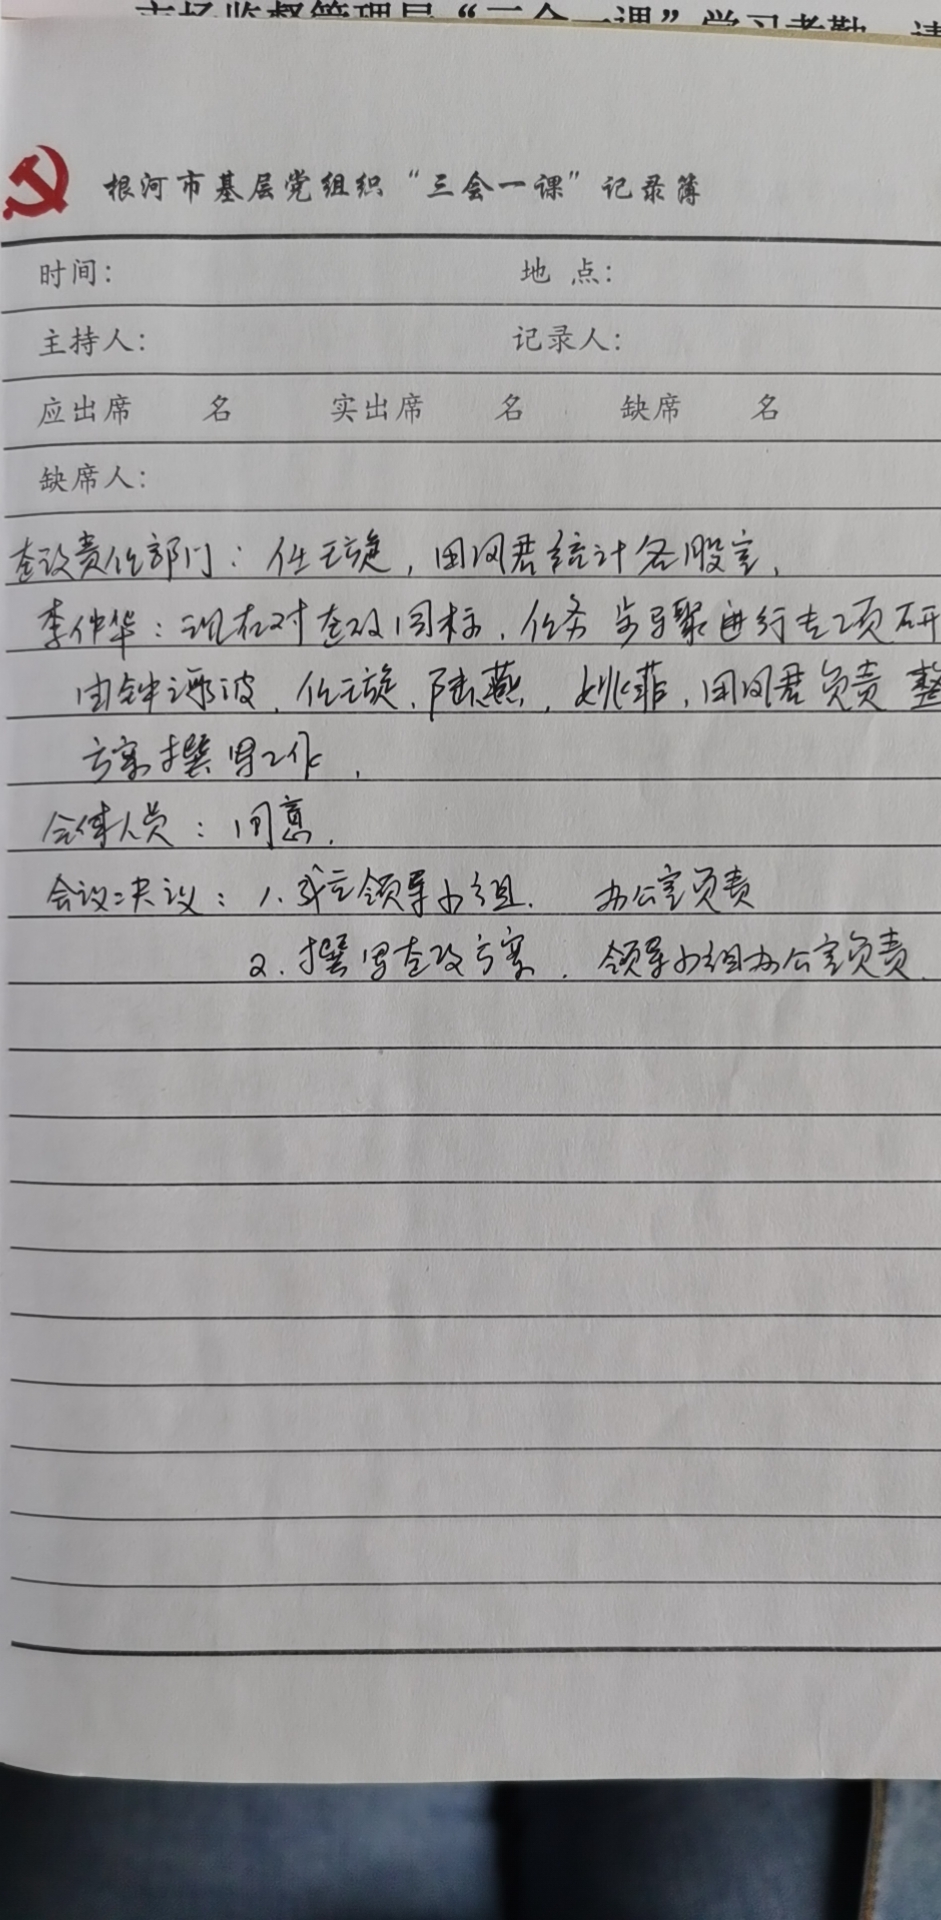 市场监督管理局“三会一课”学习考勤、请
根河市基层党组织“三会一课”记录簿
时间： 地 点：
主持人： 记录人：
应出席 名 实出席 名 缺席 名
缺席人：
查改责任部门：任云旋，田凤君统计各股室，
李仲华：现在对查改目标、任务 步骤进行专项研
由钟 波、任云旋、陆燕，姚菲，田凤君负责 整
方案撰写工作，
全体人员：同意，
会议决议：1. 成立领导小组， 办公室负责
2. 撰写查改方案， 领导小组办公室负责